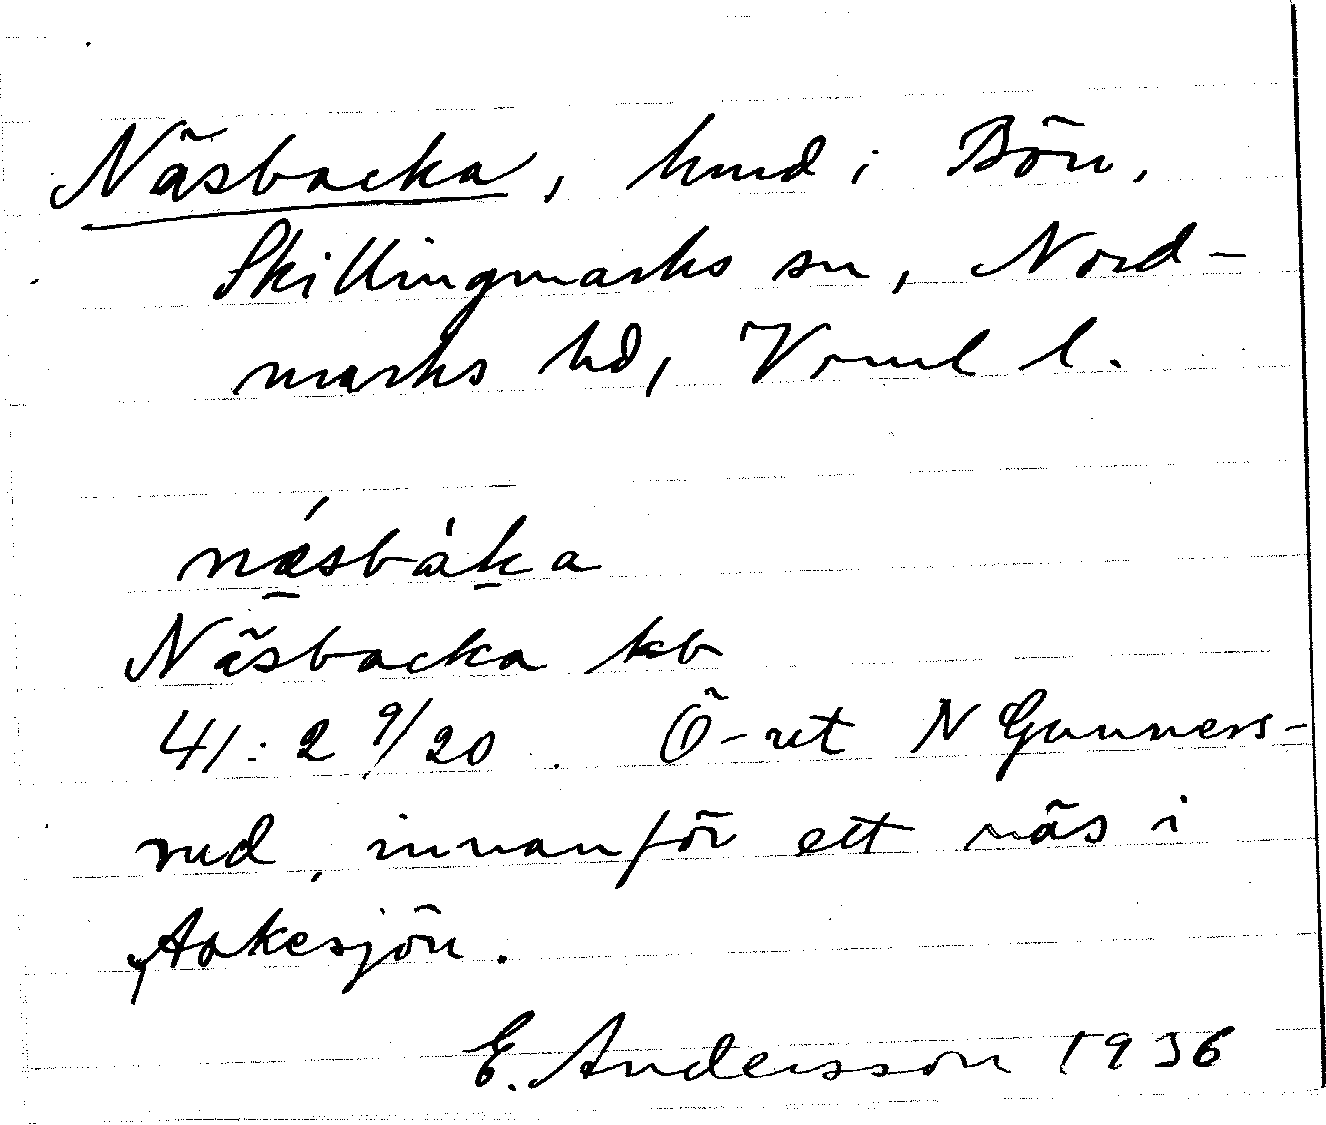 Näsbacka, hmd i Bön,
Skillingmarks sn, Nord-
marks hd, Vrml l.
nǽ̱sbàḵa
Näsbacka kb
41:2 9/20. Ö-ut N Gunners-
rud, innanför ett näs i
Askesjön.
E. Andersson 1936